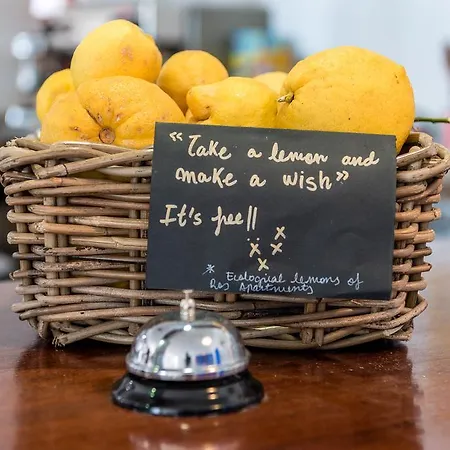 “Take a lemon and
make a wish”
It's free!!
x x
x x
x
* Ecological lemons of
Ras Apartments